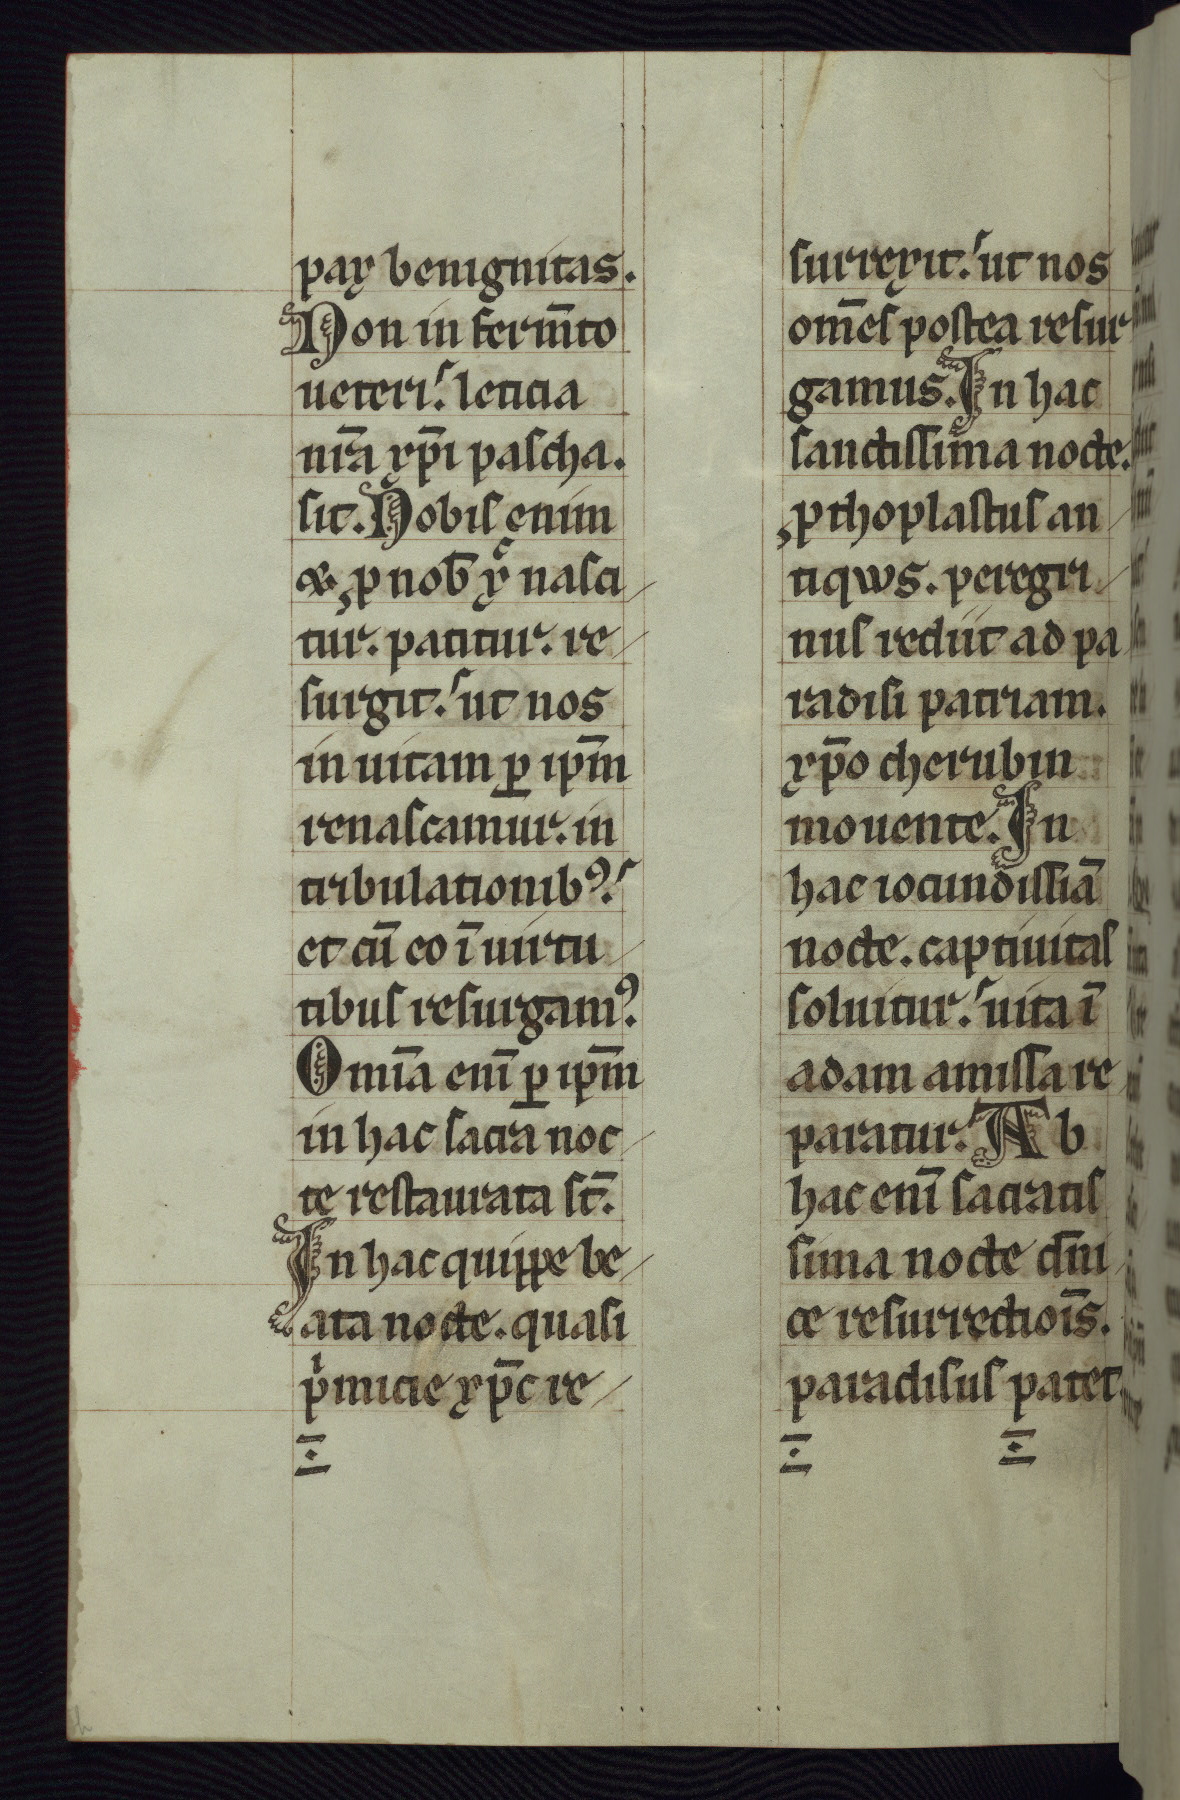 pax benignitas.
Non in ferm̄to
ueteri. leticia
nr̄a xp̄i pascha.
sit. Nobis enim
& p nob̄ xᷤ nasci
tur. patitur. re
surgit. ut nos
in uitam ꝑ ip̄m
renascamur. in
tribulationibꝰ.
et cū eo ī uirtu
tibus resurgamꝰ.
Omīa enī ꝑ ip̄m
in hac sacra noc
te restaurata st̄.
In hac quippe be
ata nocte. quasi
pͥmicie xp̄c re
surrexit. ut nos
om̄es postea resur
gamus. In hac
sanctissima nocte.
ꝓthoplastus an
tiquus. peregri
nus rediit ad pa
radisi patriam.
xp̄o cherubin
mouente. In
hac iocundissiā
nocte. captiuitas
soluitur. uita ī
adam amissa re
paratur. Ab
hac enī sacratis
sima nocte dn̄i
ce resurrectiōis.
paradisus patet